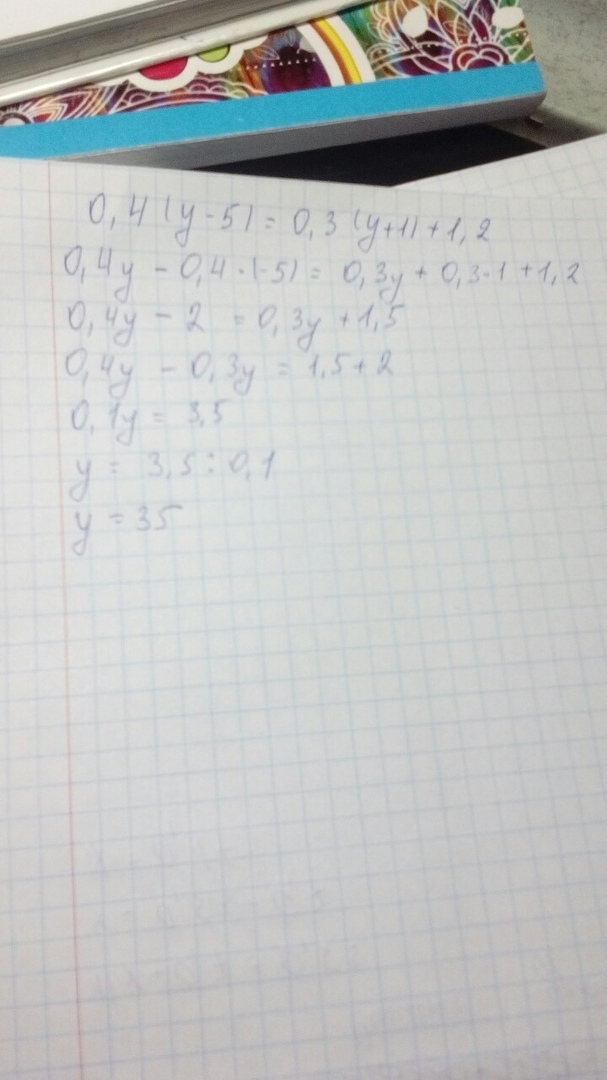 0,4 (y-5) = 0,3 (y+1) + 1,2
0,4y - 0,4·(-5) = 0,3y + 0,3·1 + 1,2
0,4y - 2 = 0,3y + 1,5
0,4y - 0,3y = 1,5+2
0,1y = 3,5
y = 3,5 : 0,1
y = 35